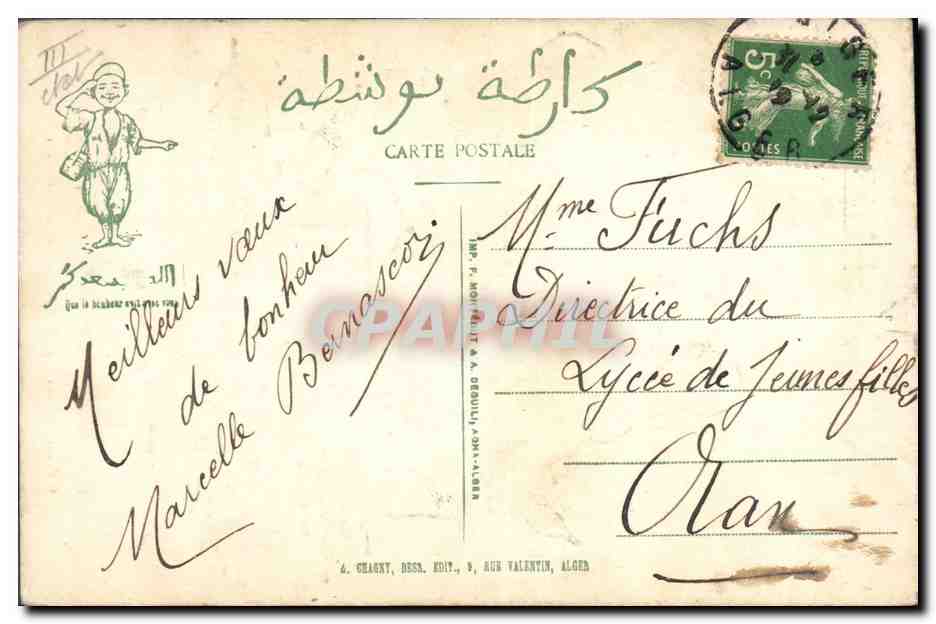 III
كارطة بوسطة
CARTE POSTALE
5c
POSTES
ALGER
Que le bonheur soit avec vous
Meilleurs vœux
de bonheur
Marcelle Bernascoi
Mme Fuchs
Directrice du
Lycée de Jeunes filles
Oran
IMP. F. MONTÉGUT & A. DEGUILI, AGHA-ALGER
A. CHAGNY, DESR. EDIT., 9, RUE VALENTIN, ALGER
CPAPHIL